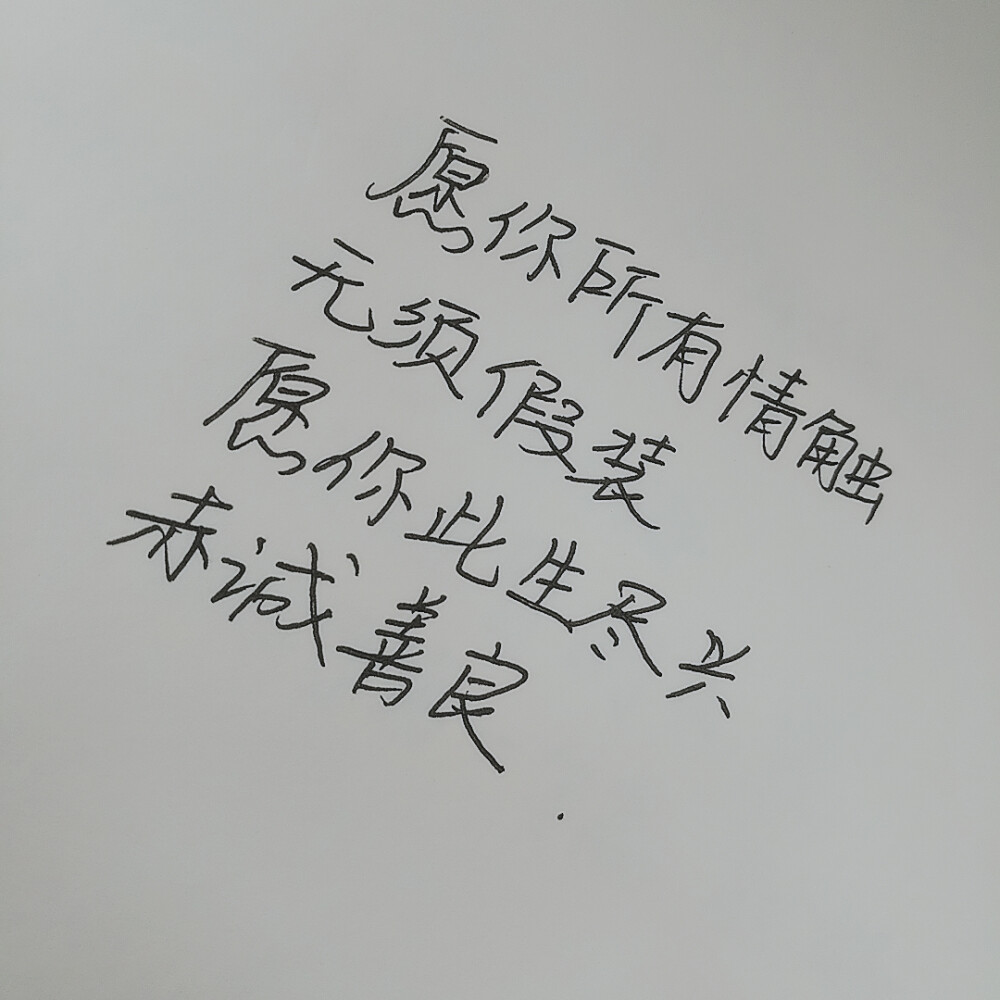 愿你所有情触
无须假装
愿你此生尽兴
赤诚善良